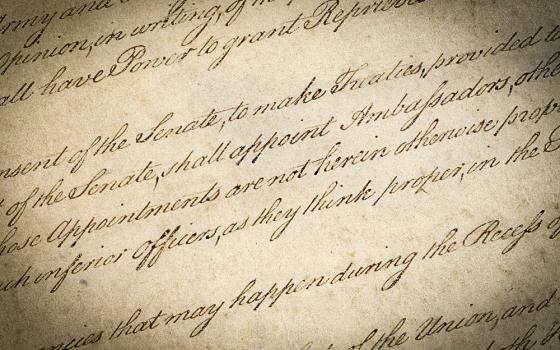 Army and
Opinion, in writing, of the
all have Power to grant Reprieve
nsent of the Senate, to make Treaties, provided t
of the Senate, shall appoint Ambaſsadors, othe
hose Appointments are not herein otherwise prov
uch inferior Officers, as they think proper, in the
ancies that may happen during the Receſs of
of the Union, and